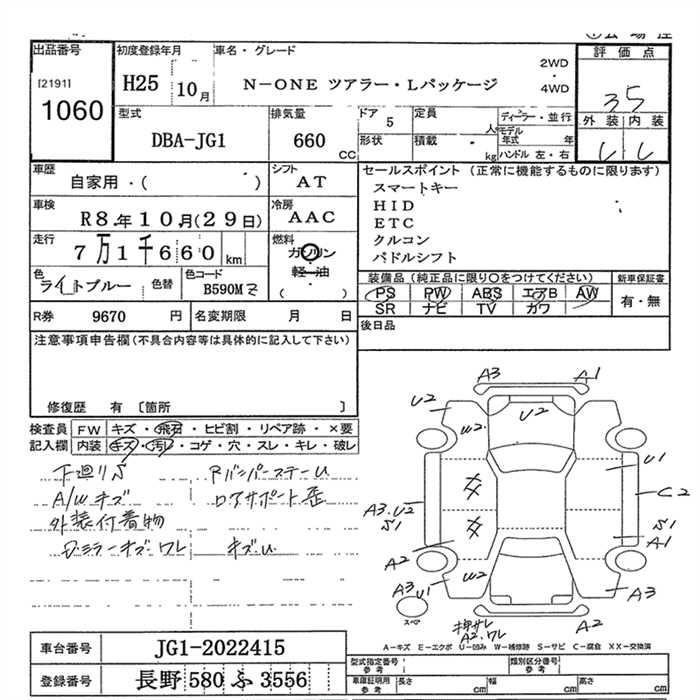 出品番号
[2191]
1060
初度登録年月
H25 10月
車名・グレード
N-ONE ツアラー・Lパッケージ
2WD
・
4WD
評価点
3.5
外装 内装
型式
DBA-JG1
排気量
660
CC
ドア 5
定員
人
形状
積載
kg
ディーラー・並行
モデル年式 年
ハンドル 左・右
車歴
自家用・( )
シフト
AT
車検
R8.年10月(29日)
冷房
AAC
走行
7万1千660 km
燃料
ガソリン
軽・油
( )
色
ライトブルー
色替
色コード
B590M
セールスポイント (正常に機能するものに限ります)
スマートキー
HID
ETC
クルコン
パドルシフト
装備品 (純正品に限り○をつけてください)
新車保証書
PS PW ABS エアB AW
SR ナビ TV カワ
有・無
R券 9670 円
名変期限 月 日
後日品
注意事項申告欄 (不具合内容等は具体的に記入して下さい)
修復歴 有 〔箇所 〕
検査員記入欄
FW キズ・飛石・ヒビ割・リペア跡・×要
内装 キズ・汚レ・コゲ・穴・スレ・キレ・破レ
下廻りS
A/Wキズ
外装付着物
Dミラーキズ・ワレ
RバンパーステーU
ロアサポート歪
キズU
A3
A1
U2
U2
W2
U1
C2
A3.U2
S1
S1
A1
A2
A3
U1
W2
A3
スペア
押サレ
A2.ワレ
A2
A-キズ E-エクボ U-凹み W-補修跡 S-サビ C-腐食 XX-交換済
車台番号 JG1-2022415
登録番号 長野 580 ふ 3556
型式指定番号 参考
類別区分番号 参考
車庫証明用 参考
長さ cm
幅 cm
高さ cm